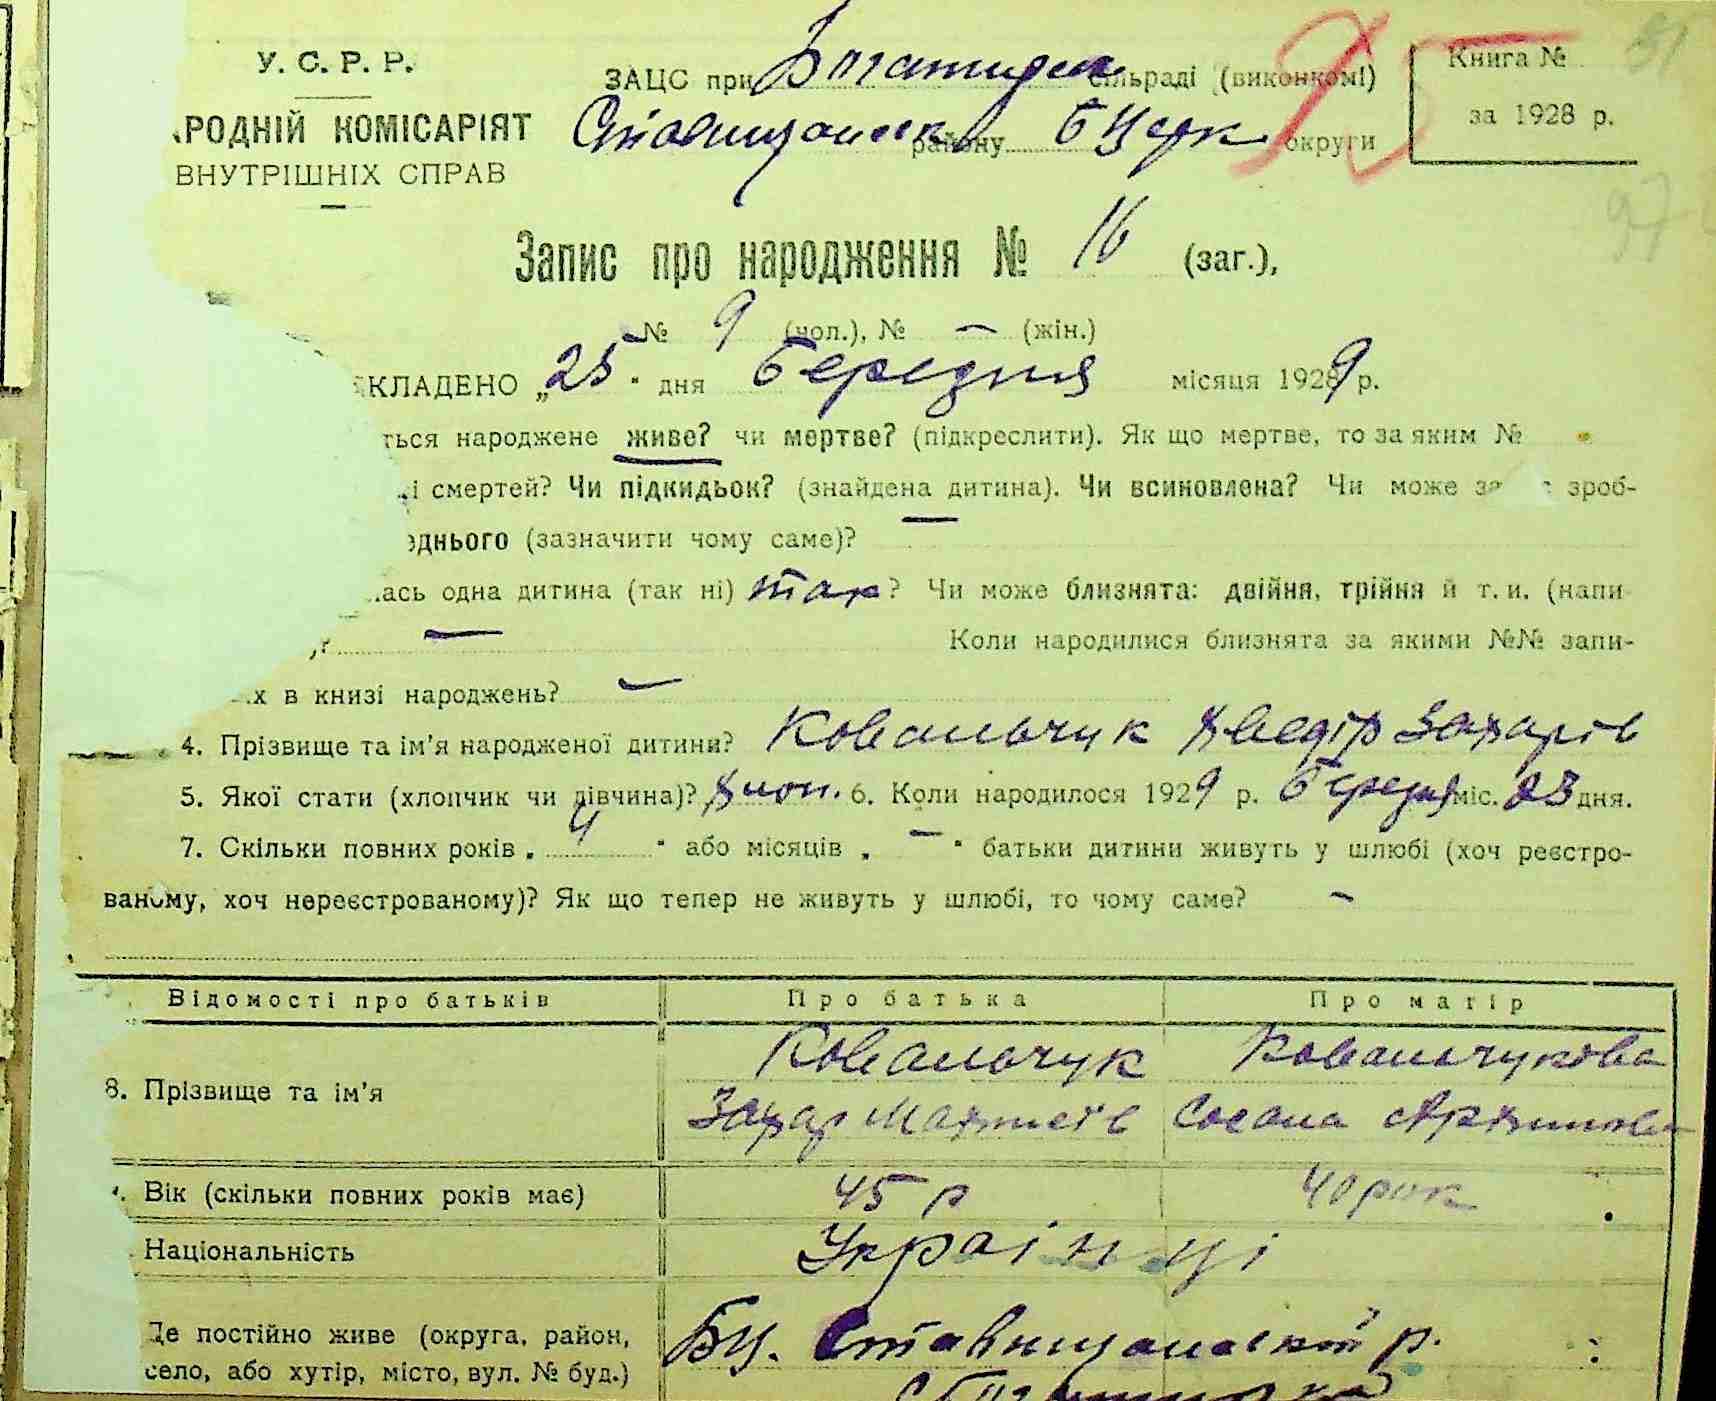 У. С. Р. Р.
РОДНІЙ КОМІСАРІЯТ
ВНУТРІШНІХ СПРАВ
ЗАЦС при сільраді (виконкомі)
району Б Церк округи
Книга №
за 1928 р.
51
97
Запис про народження № 16 (заг.),
№ 9 (чол.), № — (жін.)
КЛАДЕНО „25" дня березня місяця 1929 р.
ться народжене живе? чи мертве? (підкреслити). Як що мертве, то за яким №
і смертей? Чи підкидьок? (знайдена дитина). Чи всиновлена? Чи може за зроб-
еднього (зазначити чому саме)? —
лась одна дитина (так ні) так? Чи може близнята: двійня, трійня й т. и. (напи-
)? — Коли народилися близнята за якими №№ запи-
х в книзі народжень? —
4. Прізвище та ім'я народженої дитини? Ковальчук Хведір Захарів
5. Якої стати (хлопчик чи дівчина)? хлоп. 6. Коли народилось 1929 р. березня міс. 23 дня.
7. Скільки повних років „ 4 " або місяців „ — " батьки дитини живуть у шлюбі (хоч реєстро-
ваному, хоч нереєстрованому)? Як що тепер не живуть у шлюбі, то чому саме? —
Відомості про батьків Про батька Про матір
8. Прізвище та ім'я Ковальчук Ковальчукова
Захар Матвіїв Сосана Архипова
Вік (скільки повних років має) 45 р 40 рок
Національність Українці
Де постійно живе (округа, район, Бц. Ставищанский р.
село, або хутір, місто, вул. № буд.)